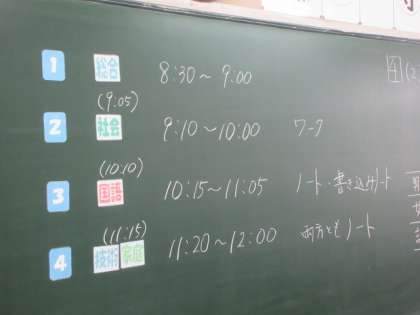 1 総合 8:30〜9:00
(9:05)
2 社会 9:10〜10:00 ワーク
(10:10)
3 国語 10:15〜11:05 ノート・書き込みノート
(11:15)
4 技術 家庭 11:20〜12:00 両方ともノート